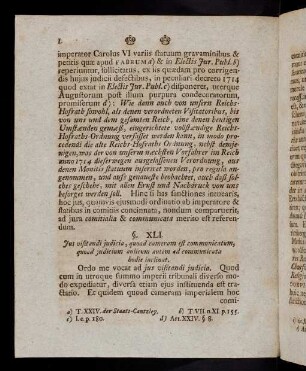 imperator Carolus VI variis statuum gravaminibus &
petitis quæ apud FABRUM a) & in Electis Jur. Publ. b)
reperiuntur, sollicitatus, ex iis quædam pro corrigen-
dis hujus judicii defectibus, in peculiari decreto 1714
quod extat in Electis Jur. Publ. c) disponeret, uterque
Augustorum post suam purpura condecorationem,
promiserunt d): Wie dann auch von unsern Reichs-
Hofrath sowohl, als denen verordneten Visitatoribus, die
von uns und dem gesamten Reich, eine denen heutigen
Umständen gemäß, eingerichtete vollständige Reichs-
Hofraths-Ordnung verfasset werden kann, in modo pro-
cedendi die alte Reichs-Hofraths Ordnung, nebst demje-
nigen, was der von unserm nächsten Vorfahrer im Reich
anno 1714 dieserwegen ausgelassenen Verordnung, aus
denen Monitis statuum inserirt worden, pro regula an-
genommen, und aufs genaueste beobachtet, auch daß sol-
ches geschehe, mit allen Ernst und Nachdruck von uns
besorget werden soll. Hinc si has sanctiones intueris,
hoc jus, quamvis ejusmodi ordinatio ab imperatore &
statibus in comitiis concinnata, nondum compareret, ad
jura comitialia & communicata merito est referen-
dum.
§. XLI.
Jus visitandi judicia, quoad cameram est communicatum,
quoad judicium aulicum autem ad communicata
hodie inclinat.
Ordo me vocat ad jus visitandi judicia. Quod
cum in utroque summo imperii tribunali diverso mo-
do expediatur, diversa etiam ejus instituenda est tra-
ctatio. Et quidem quoad cameram imperialem hoc
comi-
a) T. XXIV. der Staats-Cantzley. b) T. VII & XI. p. 155.
c) l. c. p. 180. d) Art. XXIV. § 8.